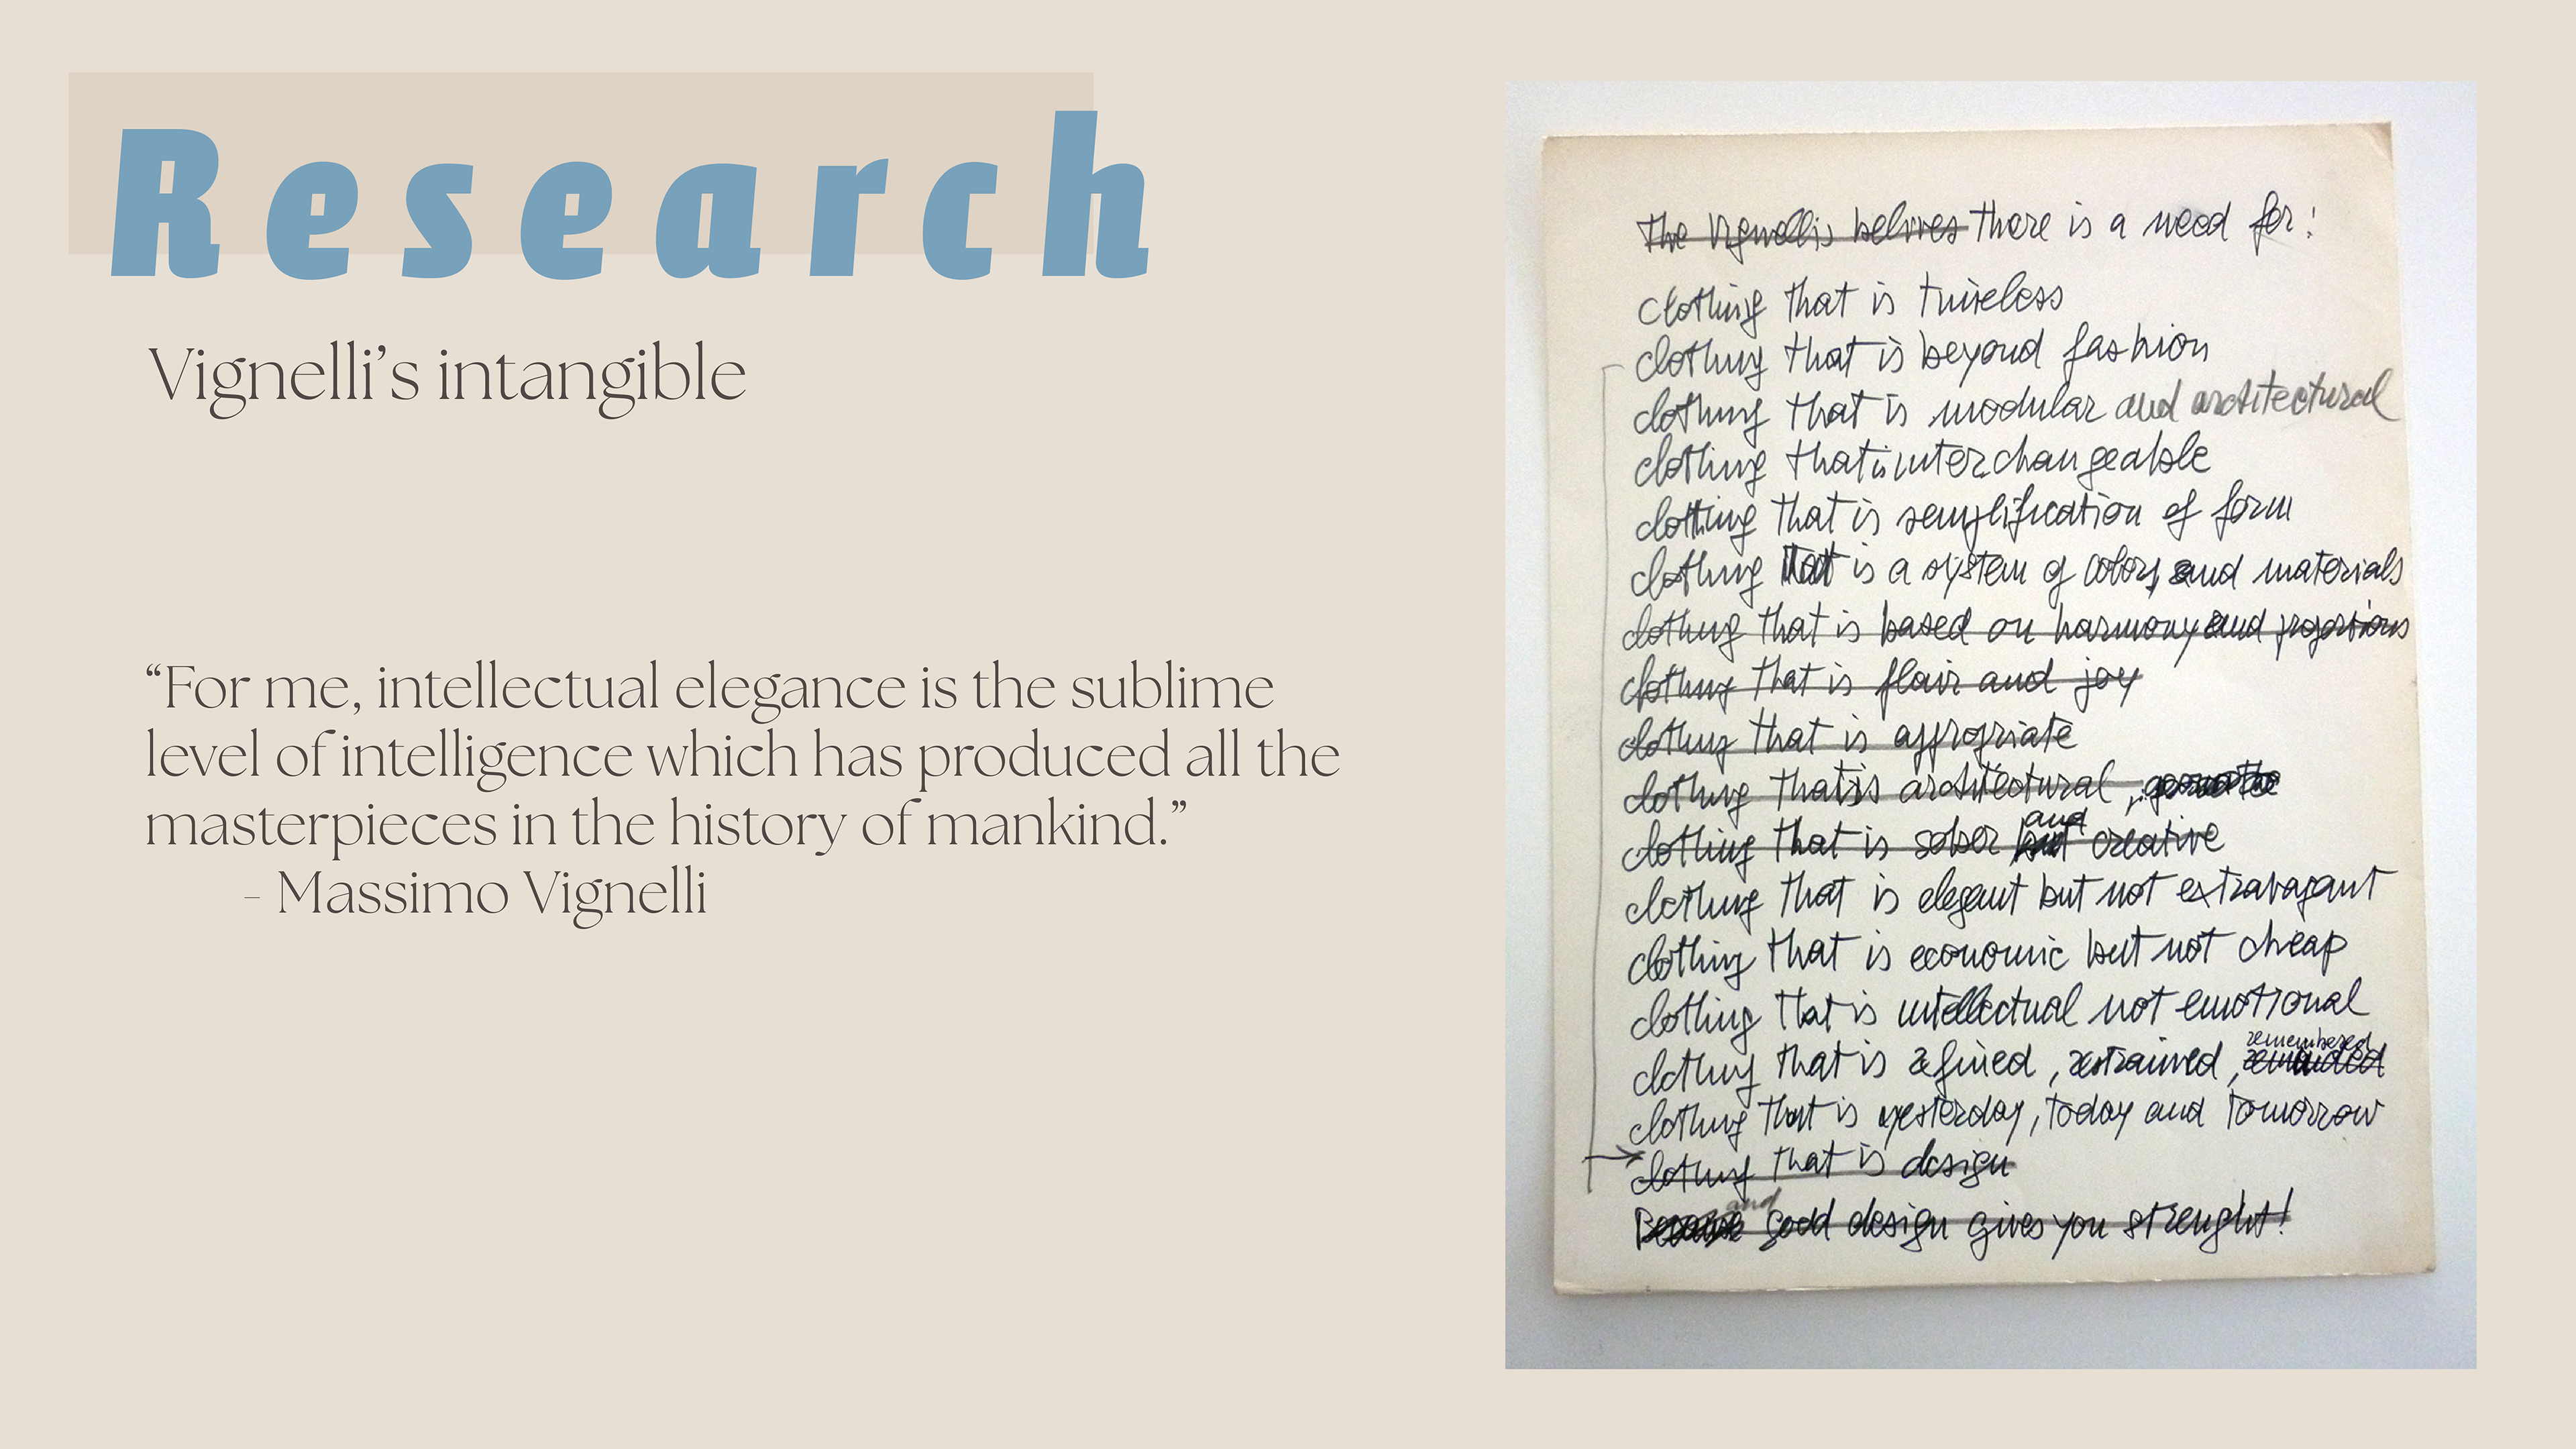 Research
Vignelli’s intangible
“For me, intellectual elegance is the sublime
level of intelligence which has produced all the
masterpieces in the history of mankind.”
- Massimo Vignelli
The Vignellis belives there is a need for:
clothing that is timeless
clothing that is beyond fashion
clothing that is modular and architectural
clothing that is interchangeable
clothing that is semplification of form
clothing that is a system of colors and materials
clothing that is based on harmony and proportions
clothing that is flair and joy
clothing that is appropriate
clothing that is architectural,
and
clothing that is sober but creative
clothing that is elegant but not extravagant
clothing that is economic but not cheap
clothing that is intellectual not emotional
remembered
clothing that is refined, restrained,
clothing that is yesterday, today and tomorrow
clothing that is design
and
Because good design gives you strenght!